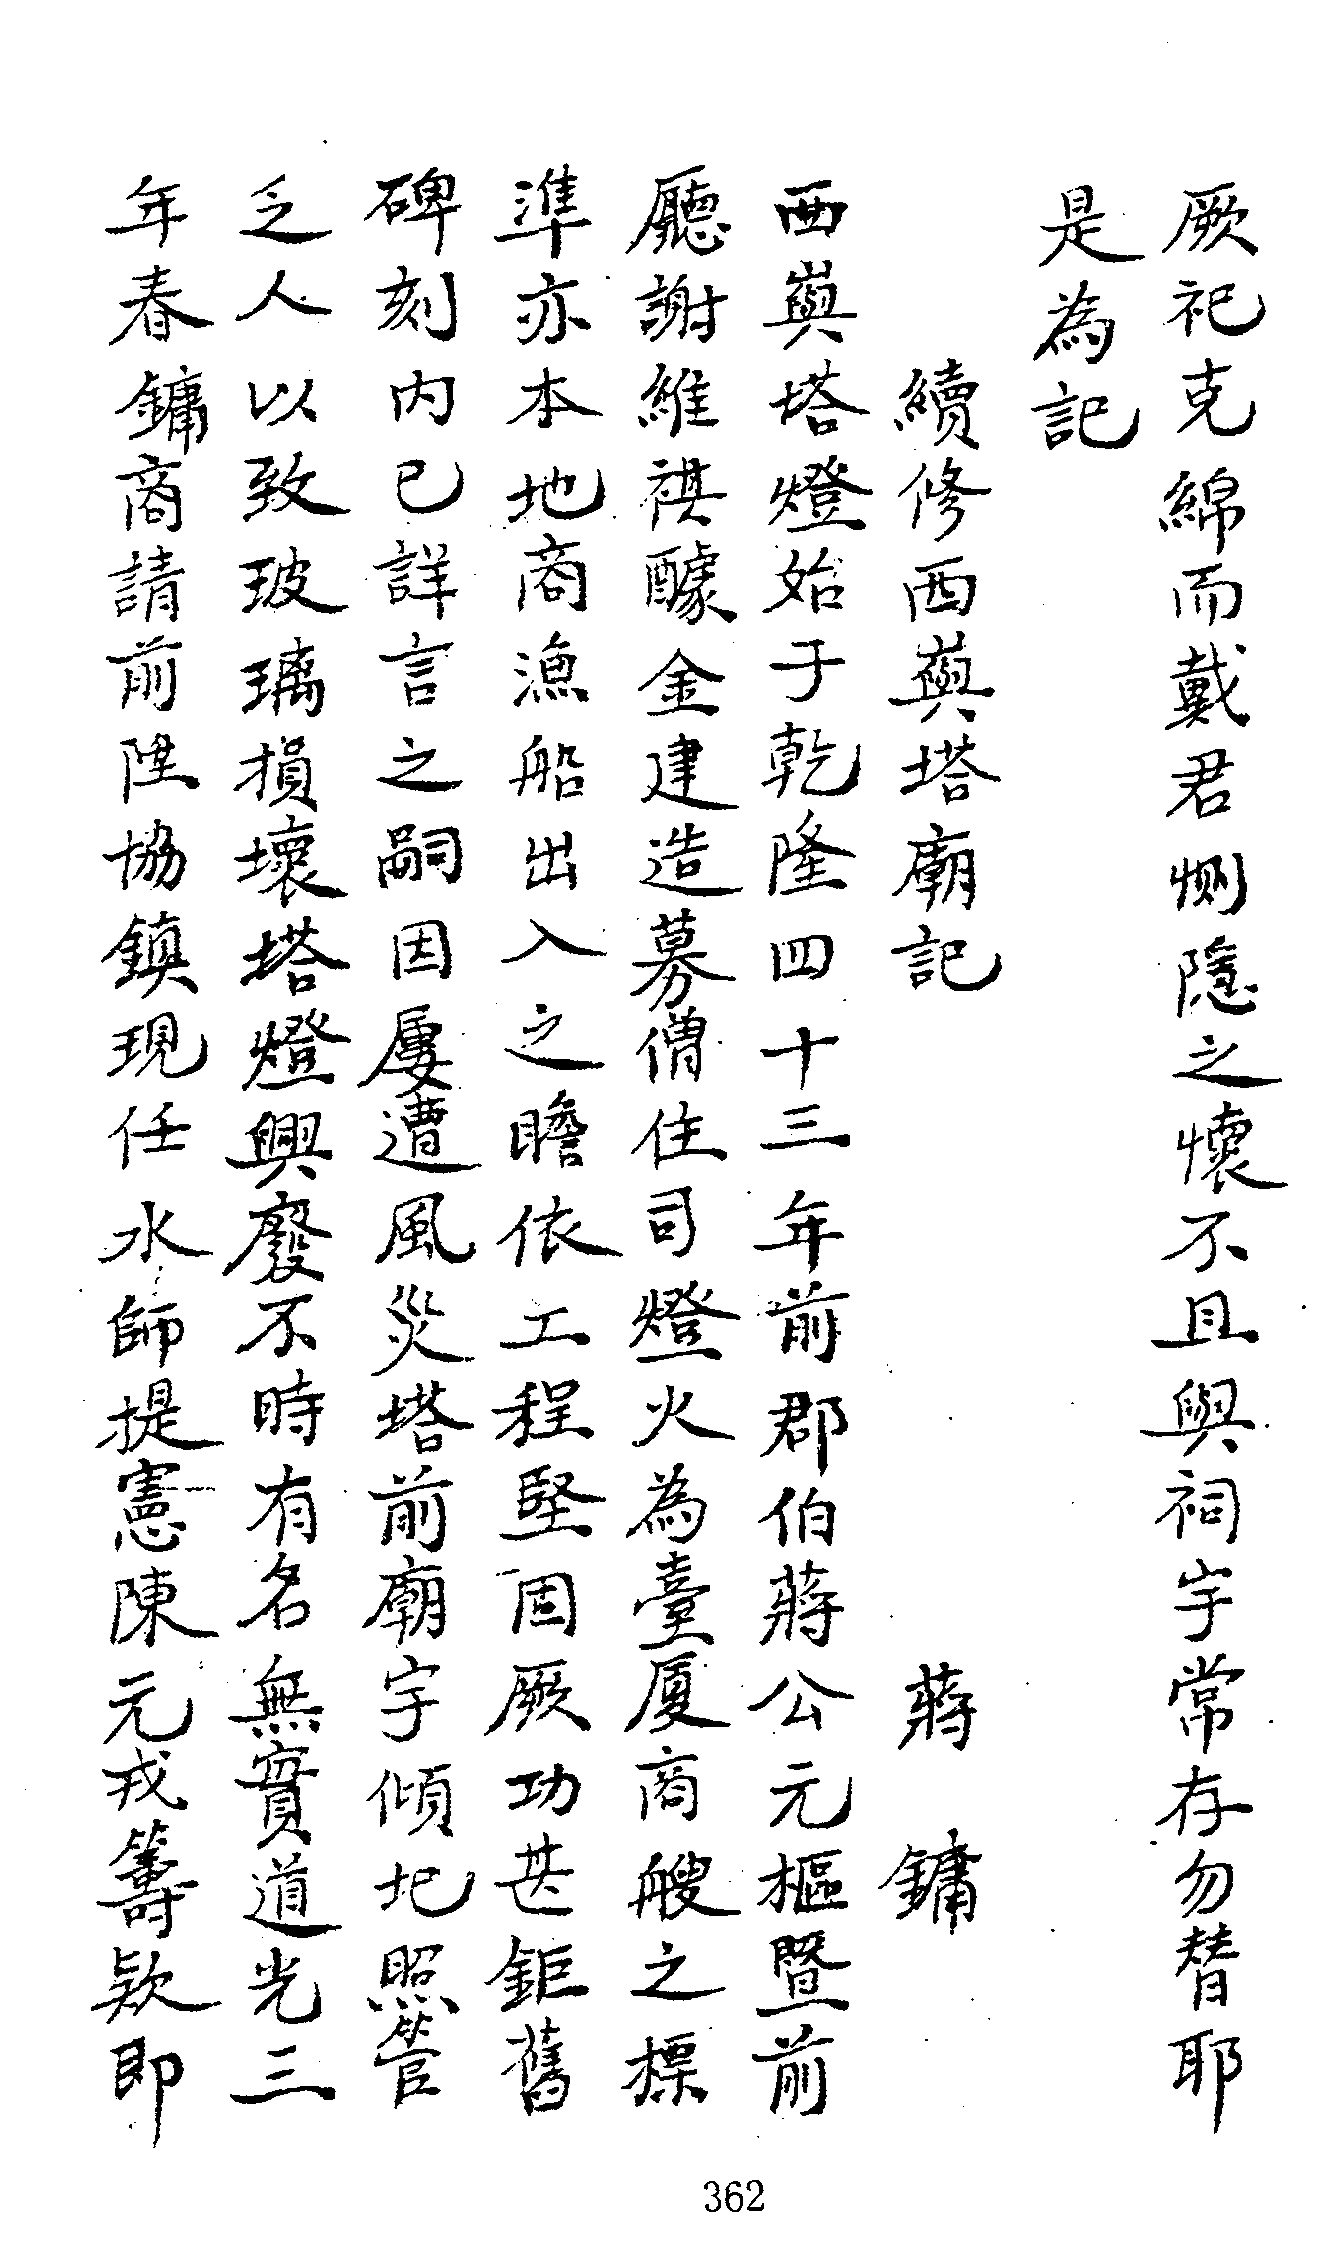 厥祀克綿而戴君惻隱之懷不且與祠宇常存勿替耶
是為記
續修西嶼塔廟記 蔣鏞
西嶼塔燈始于乾隆四十三年前郡伯蔣公元樞暨前
廳謝維祺醵金建造募僧住司燈火為臺厦商艘之標
準亦本地商漁船出入之瞻依工程堅固厥功甚鉅舊
碑刻內已詳言之嗣因屢遭風災塔前廟宇傾圮照管
乏人以致玻璃損壞塔燈興廢不時有名無實道光三
年春鏞商請前陞協鎮現任水師提憲陳元戎籌欵即
362